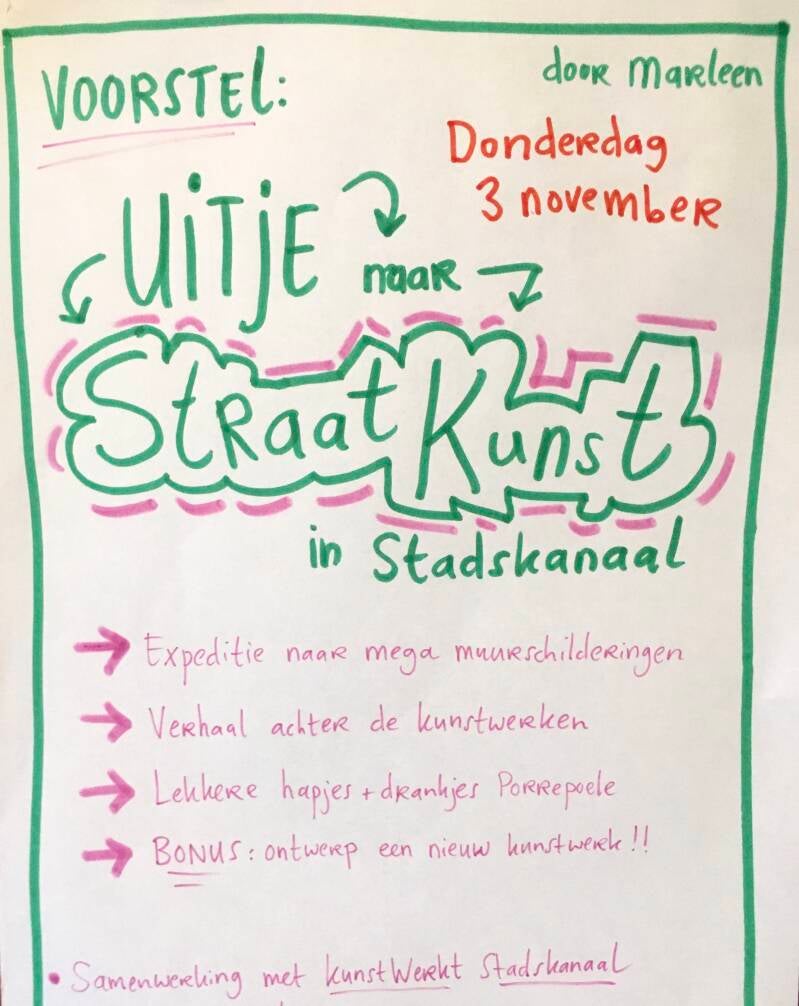 VOORSTEL:
door Marleen
Donderdag
3 november
UITJE
naar
StRaat Kunst
in Stadskanaal
→ Expeditie naar mega muurschilderingen
→ Verhaal achter de kunstwerken
→ Lekkere hapjes + drankjes Porrepoele
→ BONUS: ontwerp een nieuw kunstwerk!!
• Samenwerking met kunstWerkt Stadskanaal